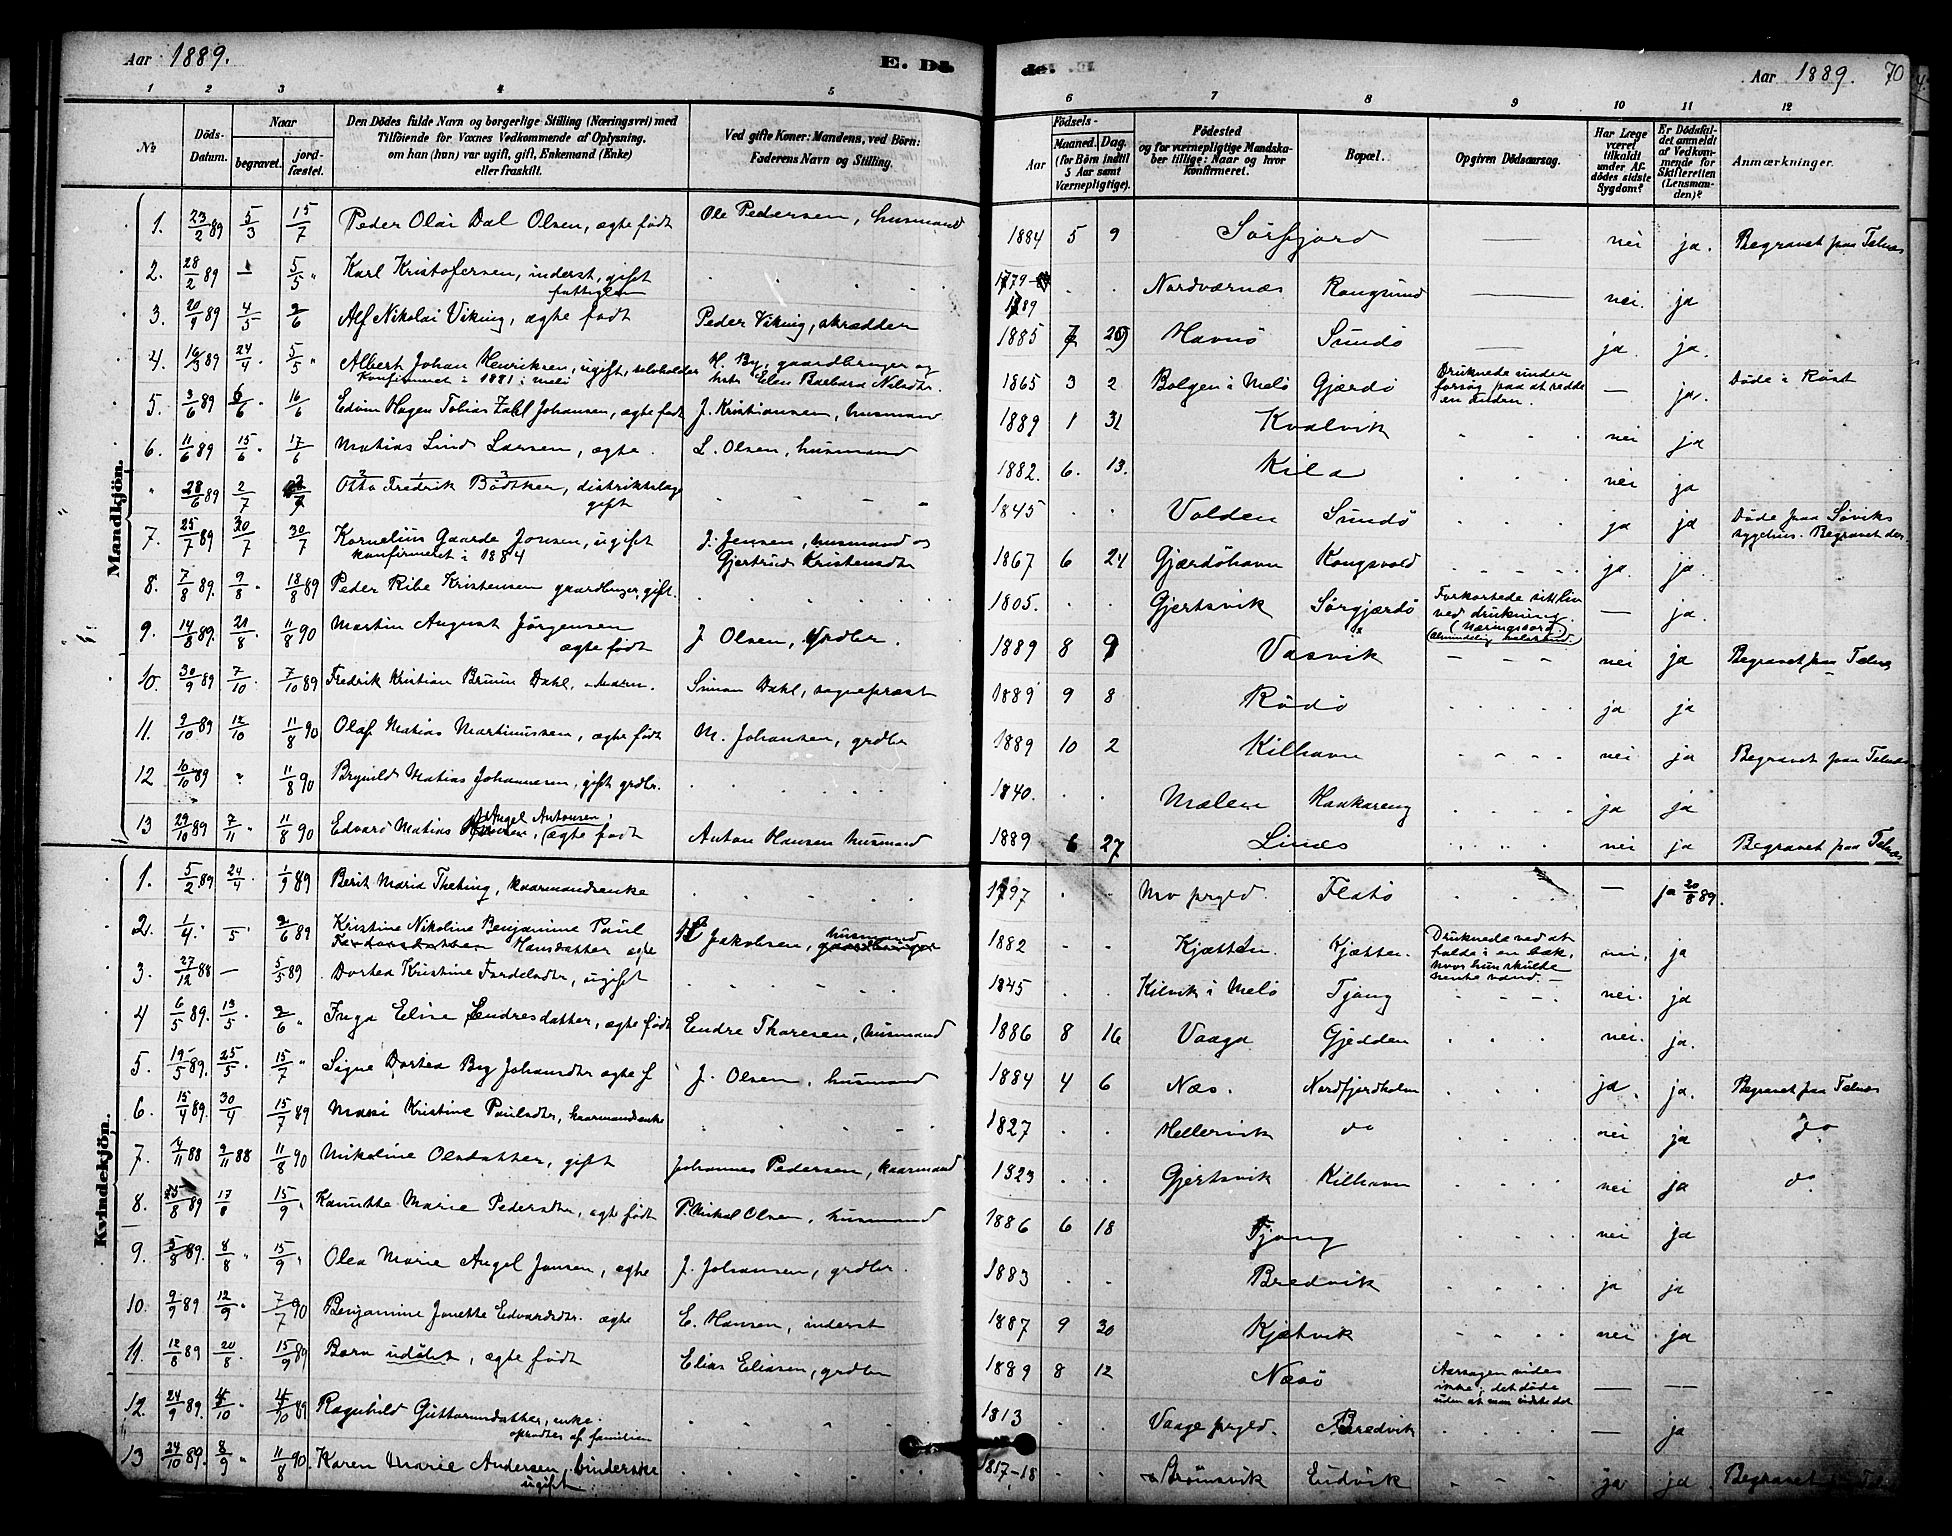 Aar 1889. E. Dö de. Aar 1889. 70
1 2 3 4 5 6 7 8 9 10 11 12
No Döds-Datum. Naar begravet. jord-fæstet. Den Dödes fulde Navn og borgerlige Stilling (Næringsvei) med Tilföiende for Voxnes Vedkommende af Oplysning, om han (hun) var ugift, gift, Enkemand (Enke) eller fraskilt. Ved gifte Koner: Mandens, ved Börn: Faderens Navn og Stilling. Aar Födsels- Maaned. Dag. (for Börn indtil 5 Aar samt Værnepligtige). Födested og for værnepligtige Mandskaber tillige: Naar og hvor konfirmeret. Bopæl. Opgiven Dödsaarsag. Har Læge været tilkaldt under Afdödes sidste Sygdom? Er Dödsfaldet anmeldt af Vedkommende for Skifteretten (Lensmanden)? Anmærkninger.
Mandkjön.
1. 23/2 89 5/3 15/7 Peder Olai Dal Olsen, ægte født Ole Pedersen, husmand 1884 5 9 Sørfjord — nei ja. Begravet paa Telnæs
2. 28/2 89 — 5/5 " Karl Kristofersen, inderst, gift fattiglem 1779- Nordværnæs Rangsund — nei. ja
3. 20/9 89 4/5 2/6 Alf Nikolai Viking, ægte født Peder Viking, skrædder 1885 7 20 Havnø Sundø — ja. ja.
4. 16/3 89 24/4 5/5 " Albert Johan Henriksen, ugift, selvholder H. By, gaardbruger og
Konfirmeret i 1881 i Melø Elen Barbara Nilsdtr. 1865 3 2 Bolgen i Melø Gjærdø Druknede under forsøg paa at redde en anden. — ja. Døde i Røst
5. 3/6 89 6/6 16/6 Edvin Hagen Tobias Zahl Johansen, ægte født J. Kristiansen, husmand 1889 1 31 Kvalvik nei ja
6. 11/6 89 15/6 17/6 Matias Lind Larsen, ægte L. Olsen, husmand 1882 6. 13. Kila nei ja
" 28/6 89 2/7 Otto Fredrik Bødtker, distriktslæge gift 1845 Volden Sundø ja ja Døde paa Søviks sygehus. Begravet der.
7. 25/7 89 30/7 30/7 Kornelius Gaarde Jonsen, ugift J. Jensen, husmand og
konfirmeret i 1884 Gjertrud Kristensdtr 1867 6 24 Gjærdøhavn Kongsvold ja. ja.
8. 7/8 89. 9/8 18/8 89 Peder Ribe Kristensen gaardbruger, gift. 1805. Gjertsvik Sørgjærdø Forkortede sit liv ved drukning. (Næringssorg) — ja.
9. 14/8 89. 21/8. 11/8 90 Martin August Jørgensen ægte født J. Olsen, Grdbr. 1889 8 9 Vasvik nei ja Begravet paa Telnæs
10. 30/9 89 7/10. 7/10 89 Fredrik Kristian Bruun Dahl. Simon Dahl, sogneprest 1889 9 8 Rødø ja ja
11. 9/10 89 12/10 11/8 90 Olaf Matias Martinussen, ægte født M. Johansen, grdbr 1889 10 2 Kilhavn nei ja Begravet paa Telnæs
12 10/10 89 " 11/8 90 Brynild Matias Johannesen, gift grdbr. 1840. Mælen Haakareng ja ja
13 29/10 89 7/11 " 11/8 90 Edvard Matias Angel Antonsen, (ægte født Anton Hansen husmand 1889 6 27 Linæs nei ja Begravet paa Telnæs
Kvindekjön.
1. 5/2 89 24/4 1/9 89 Berit Maria Theting, kaarmandsenke 1797 Mo prgld. Flatø — ja 20/8 89.
2. 1/4. - /5 2/6 89 Kristine Nikoline Benjamine Paul
Hansdatter ægte H. Jakobsen, husmand 1882 - - Kjætten Kjætten. Druknede ved at falde i en bæk, hvor hun skulde hente vand. nei. ja
3. 27/12 88 — 5/5 89 Dortea Kristine Fordelsdtr, ugift 1845 Kilvik i Melø Tjong nei. ja
4 6/5 89. 13/5 2/6 " Inga Elise Endresdatter, ægte født Endre Thoresen, husmand 1886 8 16 Vaaga Gjedden nei. ja.
5. 19/5 89. 25/5 15/7 " Signe Dortea Berg Johansdtr ægte f J. Olsen, husmand 1884 4 6 Næs. Nordfjordholm ja. ja. Begravet paa Telnæs
6. 15/4 89. 30/4 15/7 89 Marsi Kristine Paulsdtr, kaarmandsenke 1827 Hellervik do nei ja do
7. 4/11 88 9/11 88 11/8 90 Nikoline Olsdatter, gift Johannes Pedersen, kaarmand 1823 Gjertsvik Kilhavn nei ja do.
8. 25/8 89 17/6 15/9 " Kanutte Marie Pedersdtr, ægte født P. Mikal Olsen, husmand 1886 6 18 Tjong nei ja
9. 5/8 89. 8/8 " 15/9 " Olea Marie Angel Jonsen, ægte J. Johansen, grdbr. 1883 Bredvik ja ja
10. 9/9 89 12/9 " 7/7 90 Benjamine Jonette Edvardsdtr. ægte E. Hansen, inderst 1887 9 30 Kjætvik nei ja
11. 12/8 89 20/8. 15/9 89 Barn udøbt, ægte født Elias Eliasen, grdbr 1889 8 12 Næsø Aarsagen vides ikke; det døde uden at man vidste det — —
12. 24/9 89. 4/10 " 4/10 89 Ragnhild Guttormsdatter, enke.
opfødtes af familien 1813 Vaage prgld. Bredvik — ja
13 24/10 89. 8/9 " 11/8 90. Karen Marie Andersen, binderske ugift 1817-18 Brønsvik Eidvik ja ja. Begravet paa Telnæs